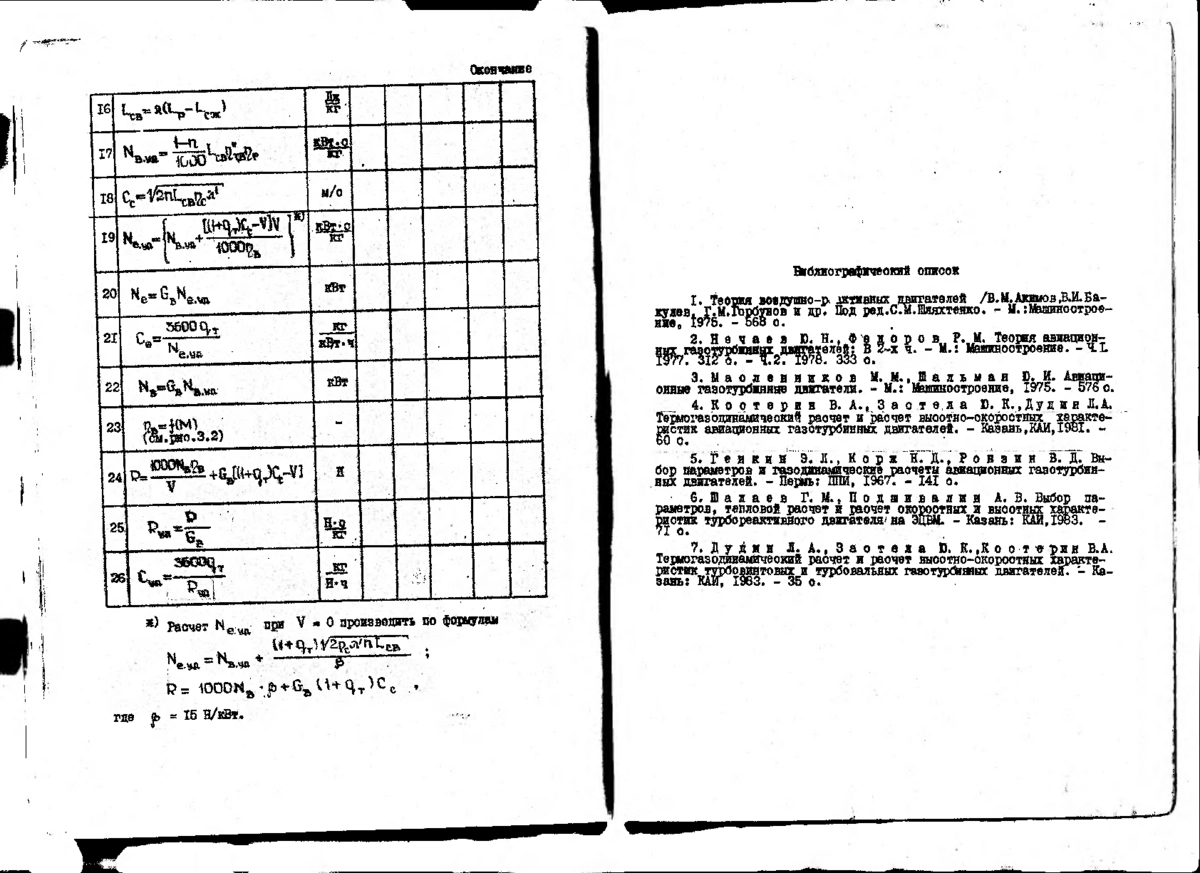 Окончание
16 L_св = a(L_р − L_сж) Дж/кг
17 N_в.уд = (1−n)/1000 L_св η*_тв η_р кВт·с/кг
18 C_с = √(2nL_св η_с a') м/с
19 N_е.уд = {N_в.уд + [(1+q_т)C_с−V]V / 1000η_в}*) кВт·с/кг
20 N_е = G_в N_е.уд кВт
21 C_е = 3600 q_т / N_е.уд кг/кВт·ч
22 N_в = G_в N_в.уд кВт
23 η_в = f(M) -
(см.рис.3.2)
24 P = 1000N_в η_в / V + G_в[(1+q_т)C_с−V] Н
25 P_уд = P / G_в Н·с/кг
26 C_уд = 3600q_т / P_уд кг/Н·ч
*) Расчет N_е.уд при V = 0 производить по формулам
N_е.уд = N_в.уд + (1+q_т)√(2η_с a' n L_св) / β ;
P = 1000N_в · β + G_в (1+q_т) C_с ,
где β = 15 Н/кВт.
Библиографический список
1. Теория воздушно-р активных двигателей /В.М.Акимов,В.И.Ба-
кулев, Г.М.Горбунов и др. Под ред.С.М.Шляхтенко. - М.:Машинострое-
ние, 1975. - 568 с.
2. Н е ч а е в Ю. Н., Ф е д о р о в Р. М. Теория авиацион-
ных газотурбинных двигателей: В 2-х ч. - М.: Машиностроение. - Ч.I.
1977. 312 с. - Ч.2. 1978. 333 с.
3. М а с л е н н и к о в М. М., Ш а л ь м а н Ю. И. Авиаци-
онные газотурбинные двигатели. - М.: Машиностроение, 1975. - 576 с.
4. К о с т е р и н В. А., З а с т е л а Ю. К., Д у д и н Л.А.
Термогазодинамический расчет и расчет высотно-скоростных характе-
ристик авиационных газотурбинных двигателей. - Казань,КАИ,1981. -
60 с.
5. Г е н к и н Э. Л., К о р ж Н. Д., Р о н з и н В. Д. Вы-
бор параметров и газодинамические расчеты авиационных газотурбин-
ных двигателей. - Пермь: ППИ, 1967. - 141 с.
6. Ш а х а е в Г. М., П о д ш и в а л и н А. В. Выбор па-
раметров, тепловой расчет и расчет скоростных и высотных характе-
ристик турбореактивного двигателя на ЭЦВМ. - Казань: КАИ,1983. -
71 с.
7. Д у д и н Л. А., З а с т е л а Ю. К., К о с т е р и н В.А.
Термогазодинамический расчет и расчет высотно-скоростных характе-
ристик турбовинтовых и турбовальных газотурбинных двигателей. - Ка-
зань: КАИ, 1983. - 35 с.